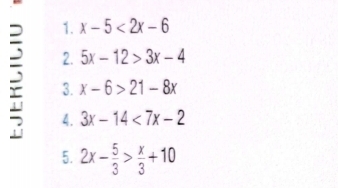 EJERCICIO
1. x – 5 < 2x – 6
2. 5x – 12 > 3x – 4
3. x – 6 > 21 – 8x
4. 3x – 14 < 7x – 2
5. 2x – 5/3 > x/3 + 10